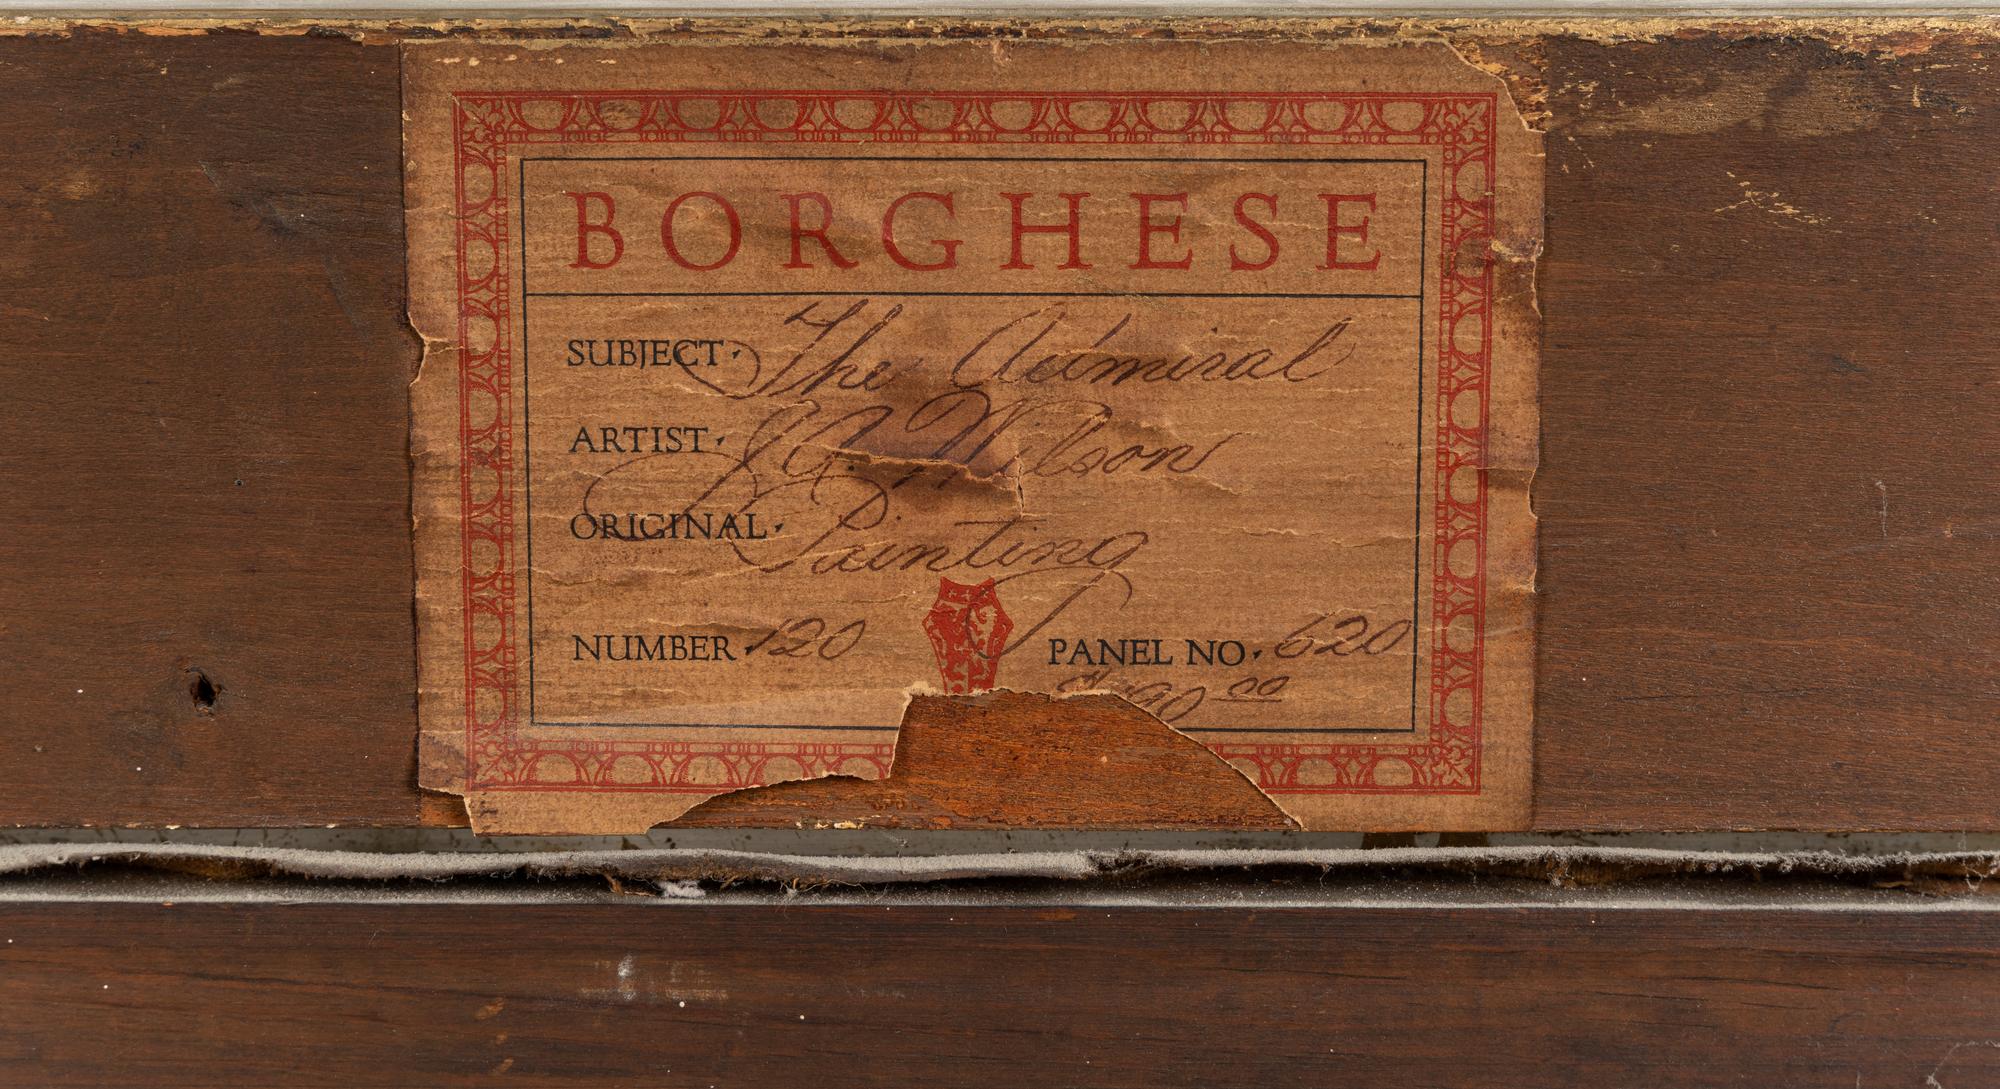 BORGHESE
SUBJECT. The Admiral
ARTIST. J.G. Wilson
ORIGINAL. Painting
NUMBER. 120 PANEL NO. 620
90 00